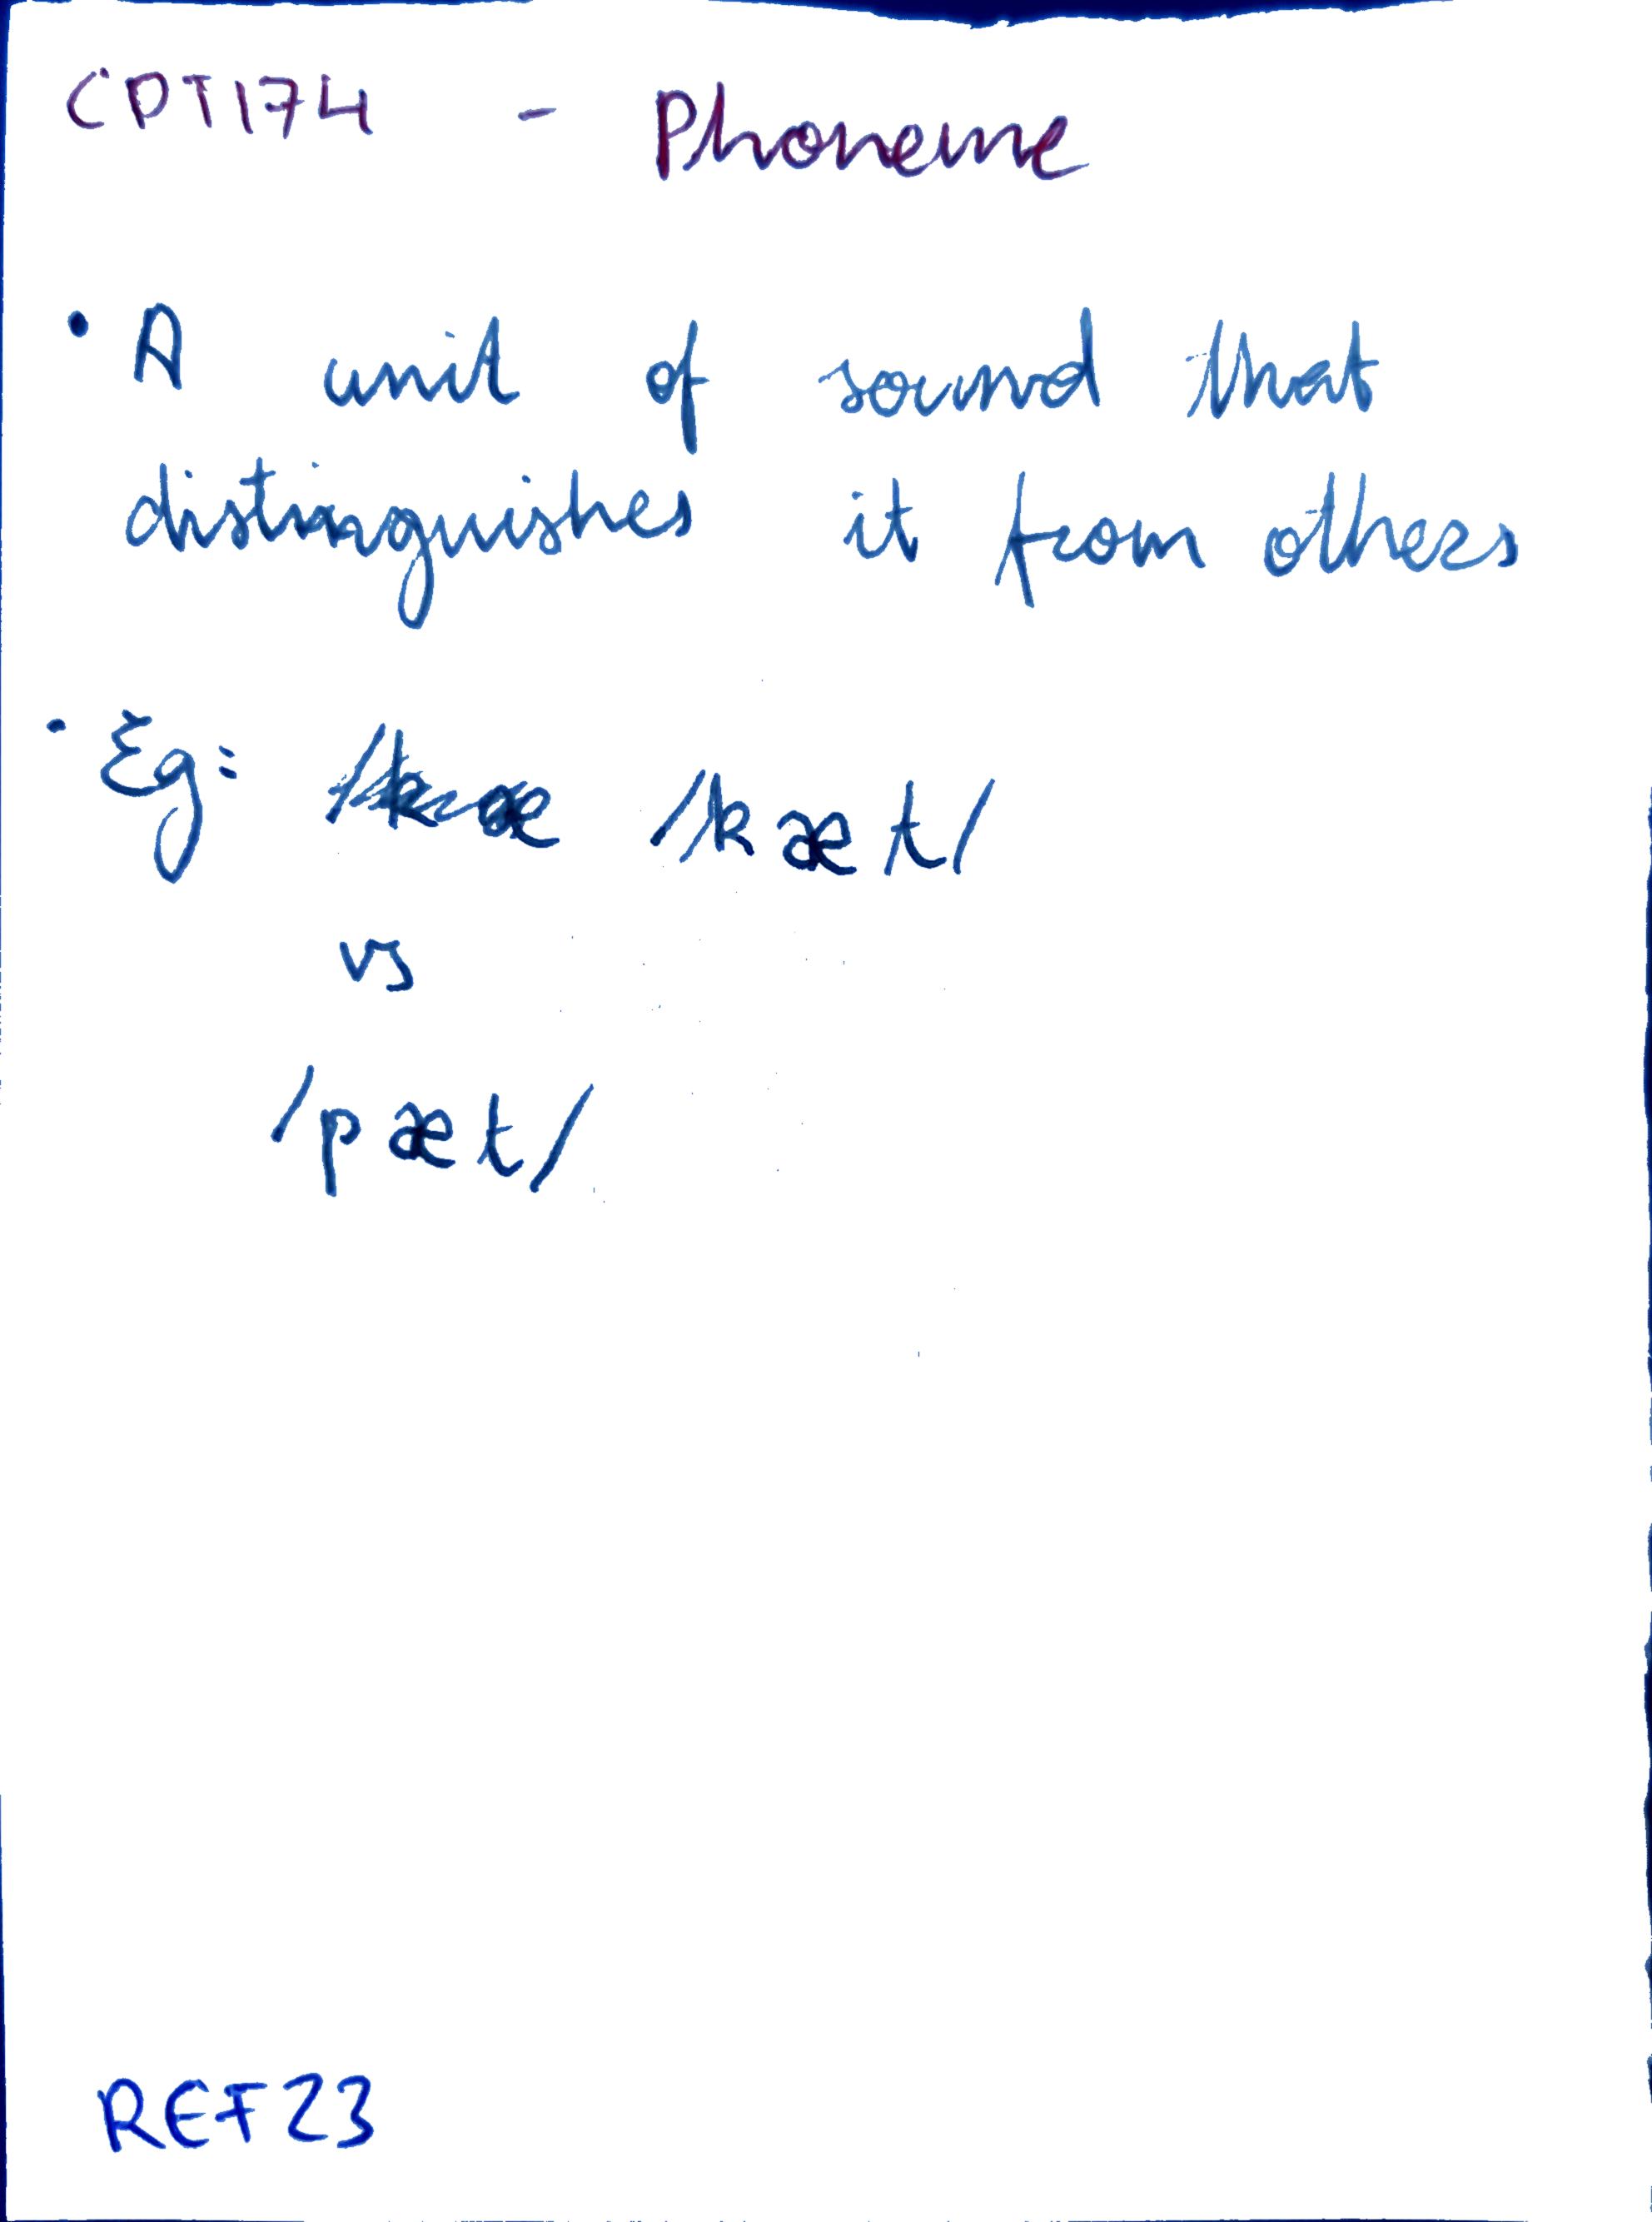 CPT174 - Phoneme
• A unit of sound that
distinguishes it from others
• Eg: /kæt/
vs
/pæt/
REF23